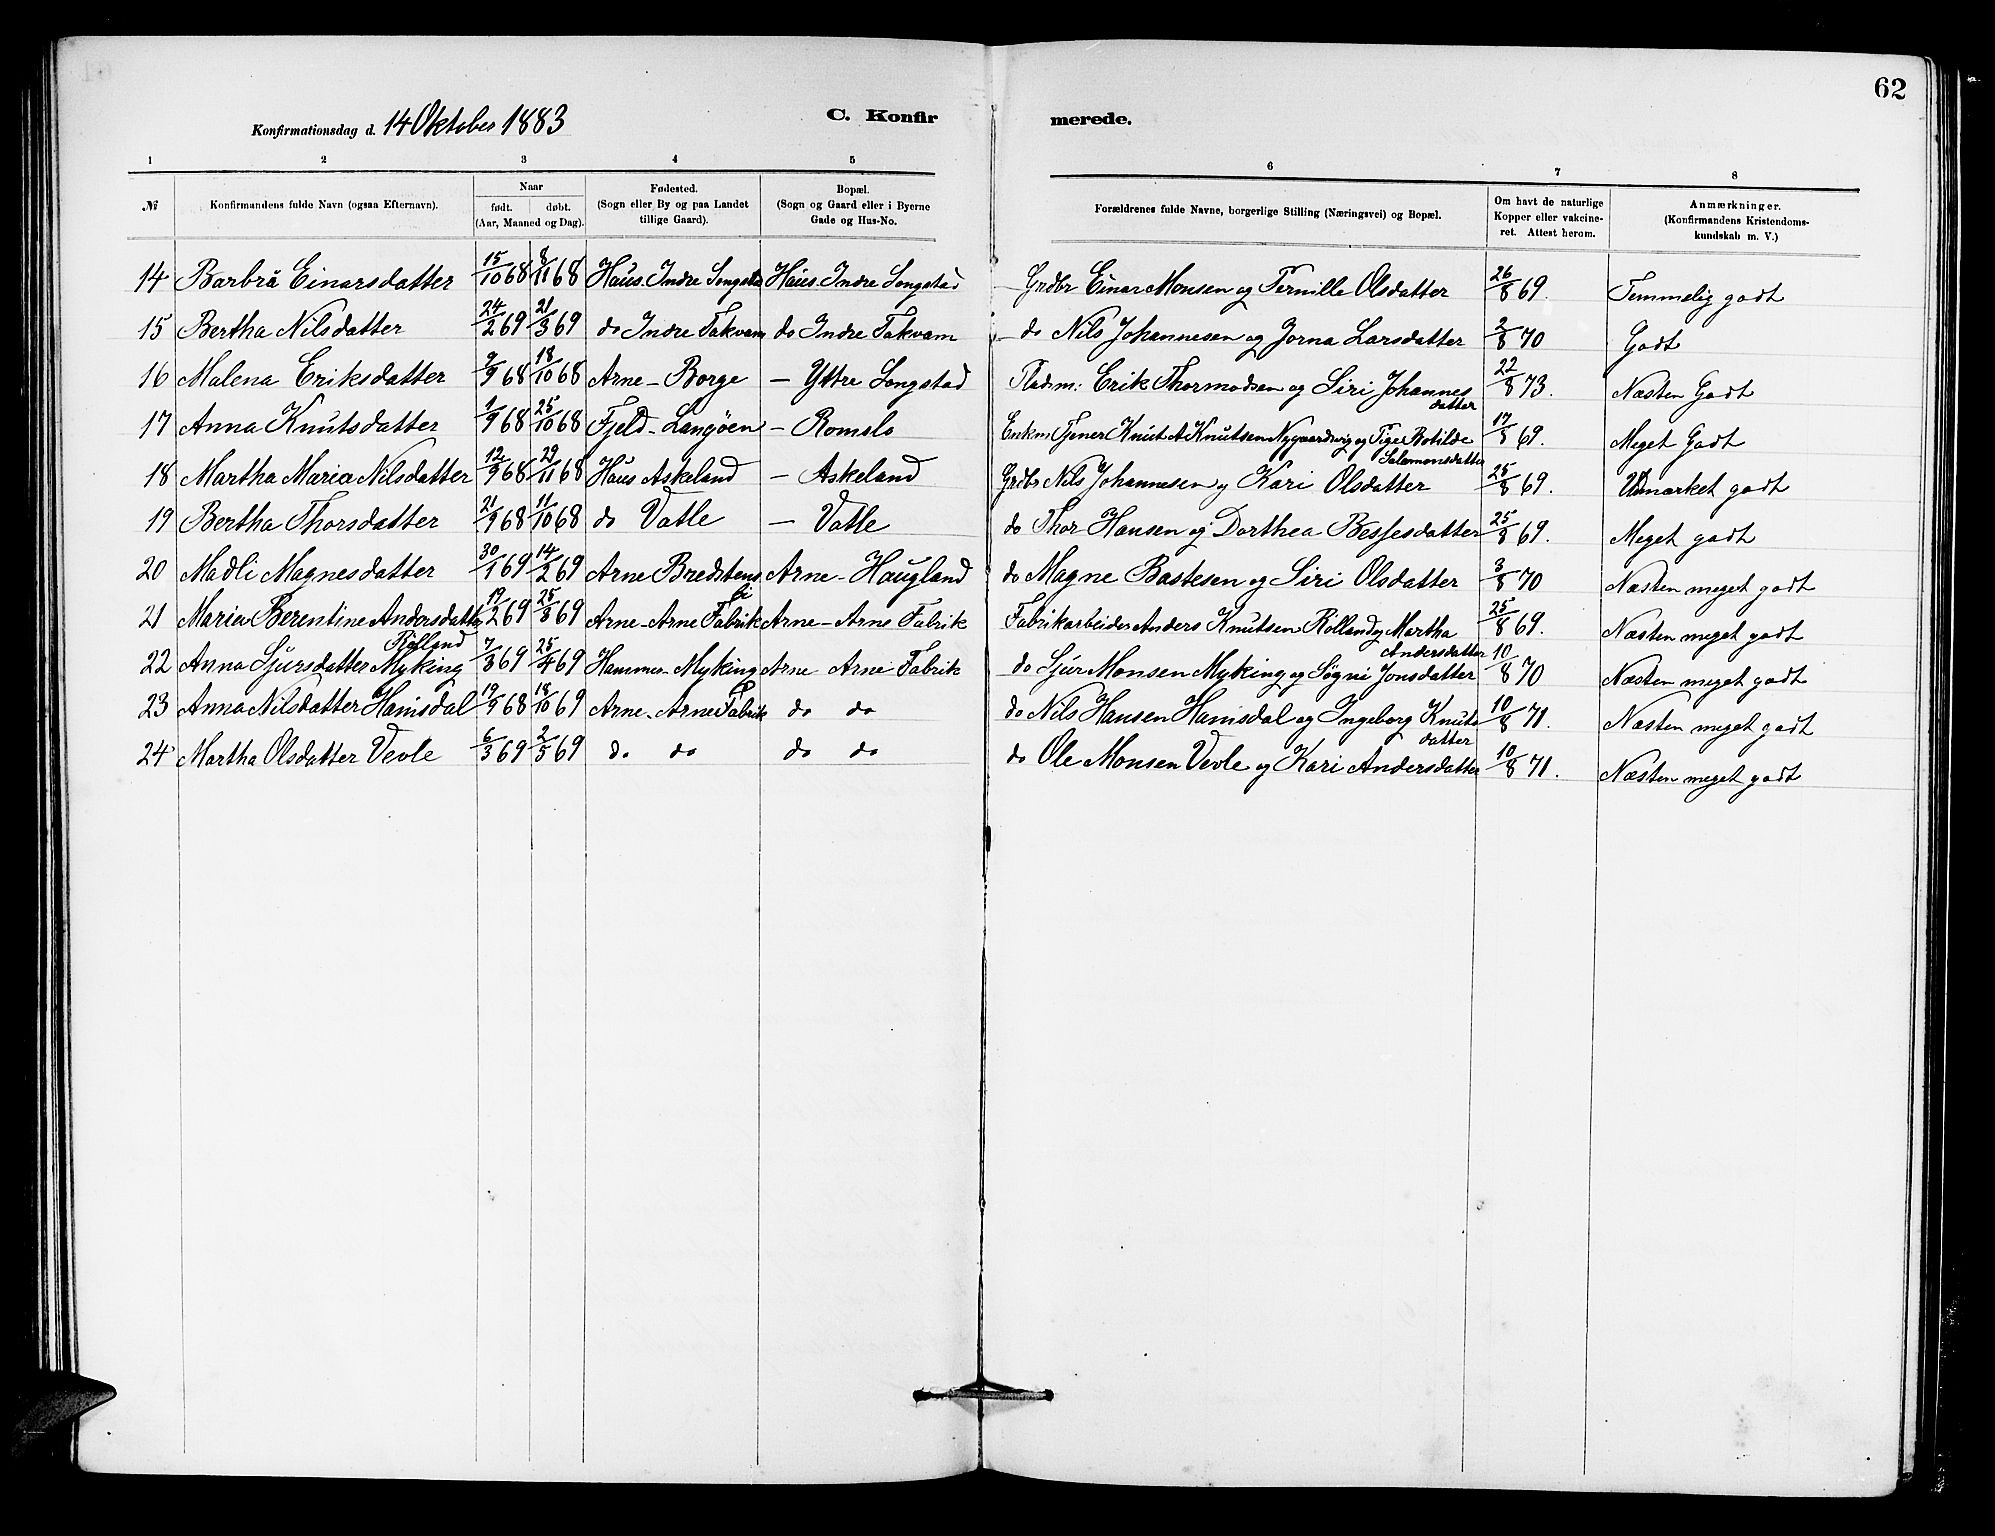 62
Konfirmationsdag d. 14 Oktober 1883 C. Konfir merede.
1 2 3 4 5 6 7 8
№ Konfirmandens fulde Navn (ogsaa Efternavn). Naar født. døbt. (Aar, Maaned og Dag). Fødested. (Sogn eller By og paa Landet tillige Gaard). Bopæl. (Sogn og Gaard eller i Byerne Gade og Hus-No. Forældrenes fulde Navne, borgerlige Stilling (Næringsvei) og Bopæl. Om havt de naturlige Kopper eller vakcineret. Attest herom. Anmærkninger. (Konfirmandens Kristendomskundskab m. V.)
14 Barbrå Einarsdatter 15/10 68 8/11 68 Haus. Indre Songstad Haus. Indre Songstad Grdbr Einar Monsen og Pernille Olsdatter 26/8 69. Temmelig godt
15 Bertha Nilsdatter 24/2 69 21/3 69 do Indre Takvam do Indre Takvam do Nils Johannesen og Jorna Larsdatter 2/8 70 Godt
16 Malena Eriksdatter 9/9 68 18/10 68 Arne - Borge - Yttre Songstad Pladsm: Erik Thormodsen og Siri Johannesdatter 22/8 73. Næsten Godt
17 Anna Knutsdatter 1/9 68 25/10 68 Fjeld - Langöen - Romslo Enkm Tjener Knut A Knutsen Nygaardsvig og Pige Botilde Salamonsdatter 17/8 69. Meget Godt
18 Martha Maria Nilsdatter 12/9 68 29/11 68 Haus Askeland - Askeland Grdbr Nils Johannesen og Kari Olsdatter 25/8 69. Udmærket godt
19 Bertha Thorsdatter 21/9 68 11/10 68 do Vatle - Vatle do Thor Hansen og Dorthea Bessesdatter 25/8 69. Meget godt
20 Madli Magnesdatter 30/1 69 14/2 69 Arne Bredstens Arne - Haugland do Magne Bastesen og Siri Olsdatter 3/8 70 Næsten meget godt
21 Maria Berentine Andersdatter Rolland 19/2 69 25/3 69 Arne - Arne Fabrik Arne - Arne Fabrik Fabrikarbeider Anders Knutsen Rolland og Martha Andersdatter 25/8 69. Næsten meget godt
22 Anna Sjursdatter Myking 7/3 69 25/4 69 Hammer - Myking Arne Arne Fabrik do Sjur Monsen Myking og Sögni Jonsdatter 10/8 70 Næsten meget godt
23 Anna Nilsdatter Hamsdal 19/9 68 18/10 69 Arne - Arne Fabrik do do do Nils Hansen Hamsdal og Ingeborg Knutsdatter 10/8 71. Næsten meget godt
24 Martha Olsdatter Vevle 6/3 69 2/5 69 do do do do do Ole Monsen Vevle og Kari Andersdatter 10/8 71. Næsten meget godt